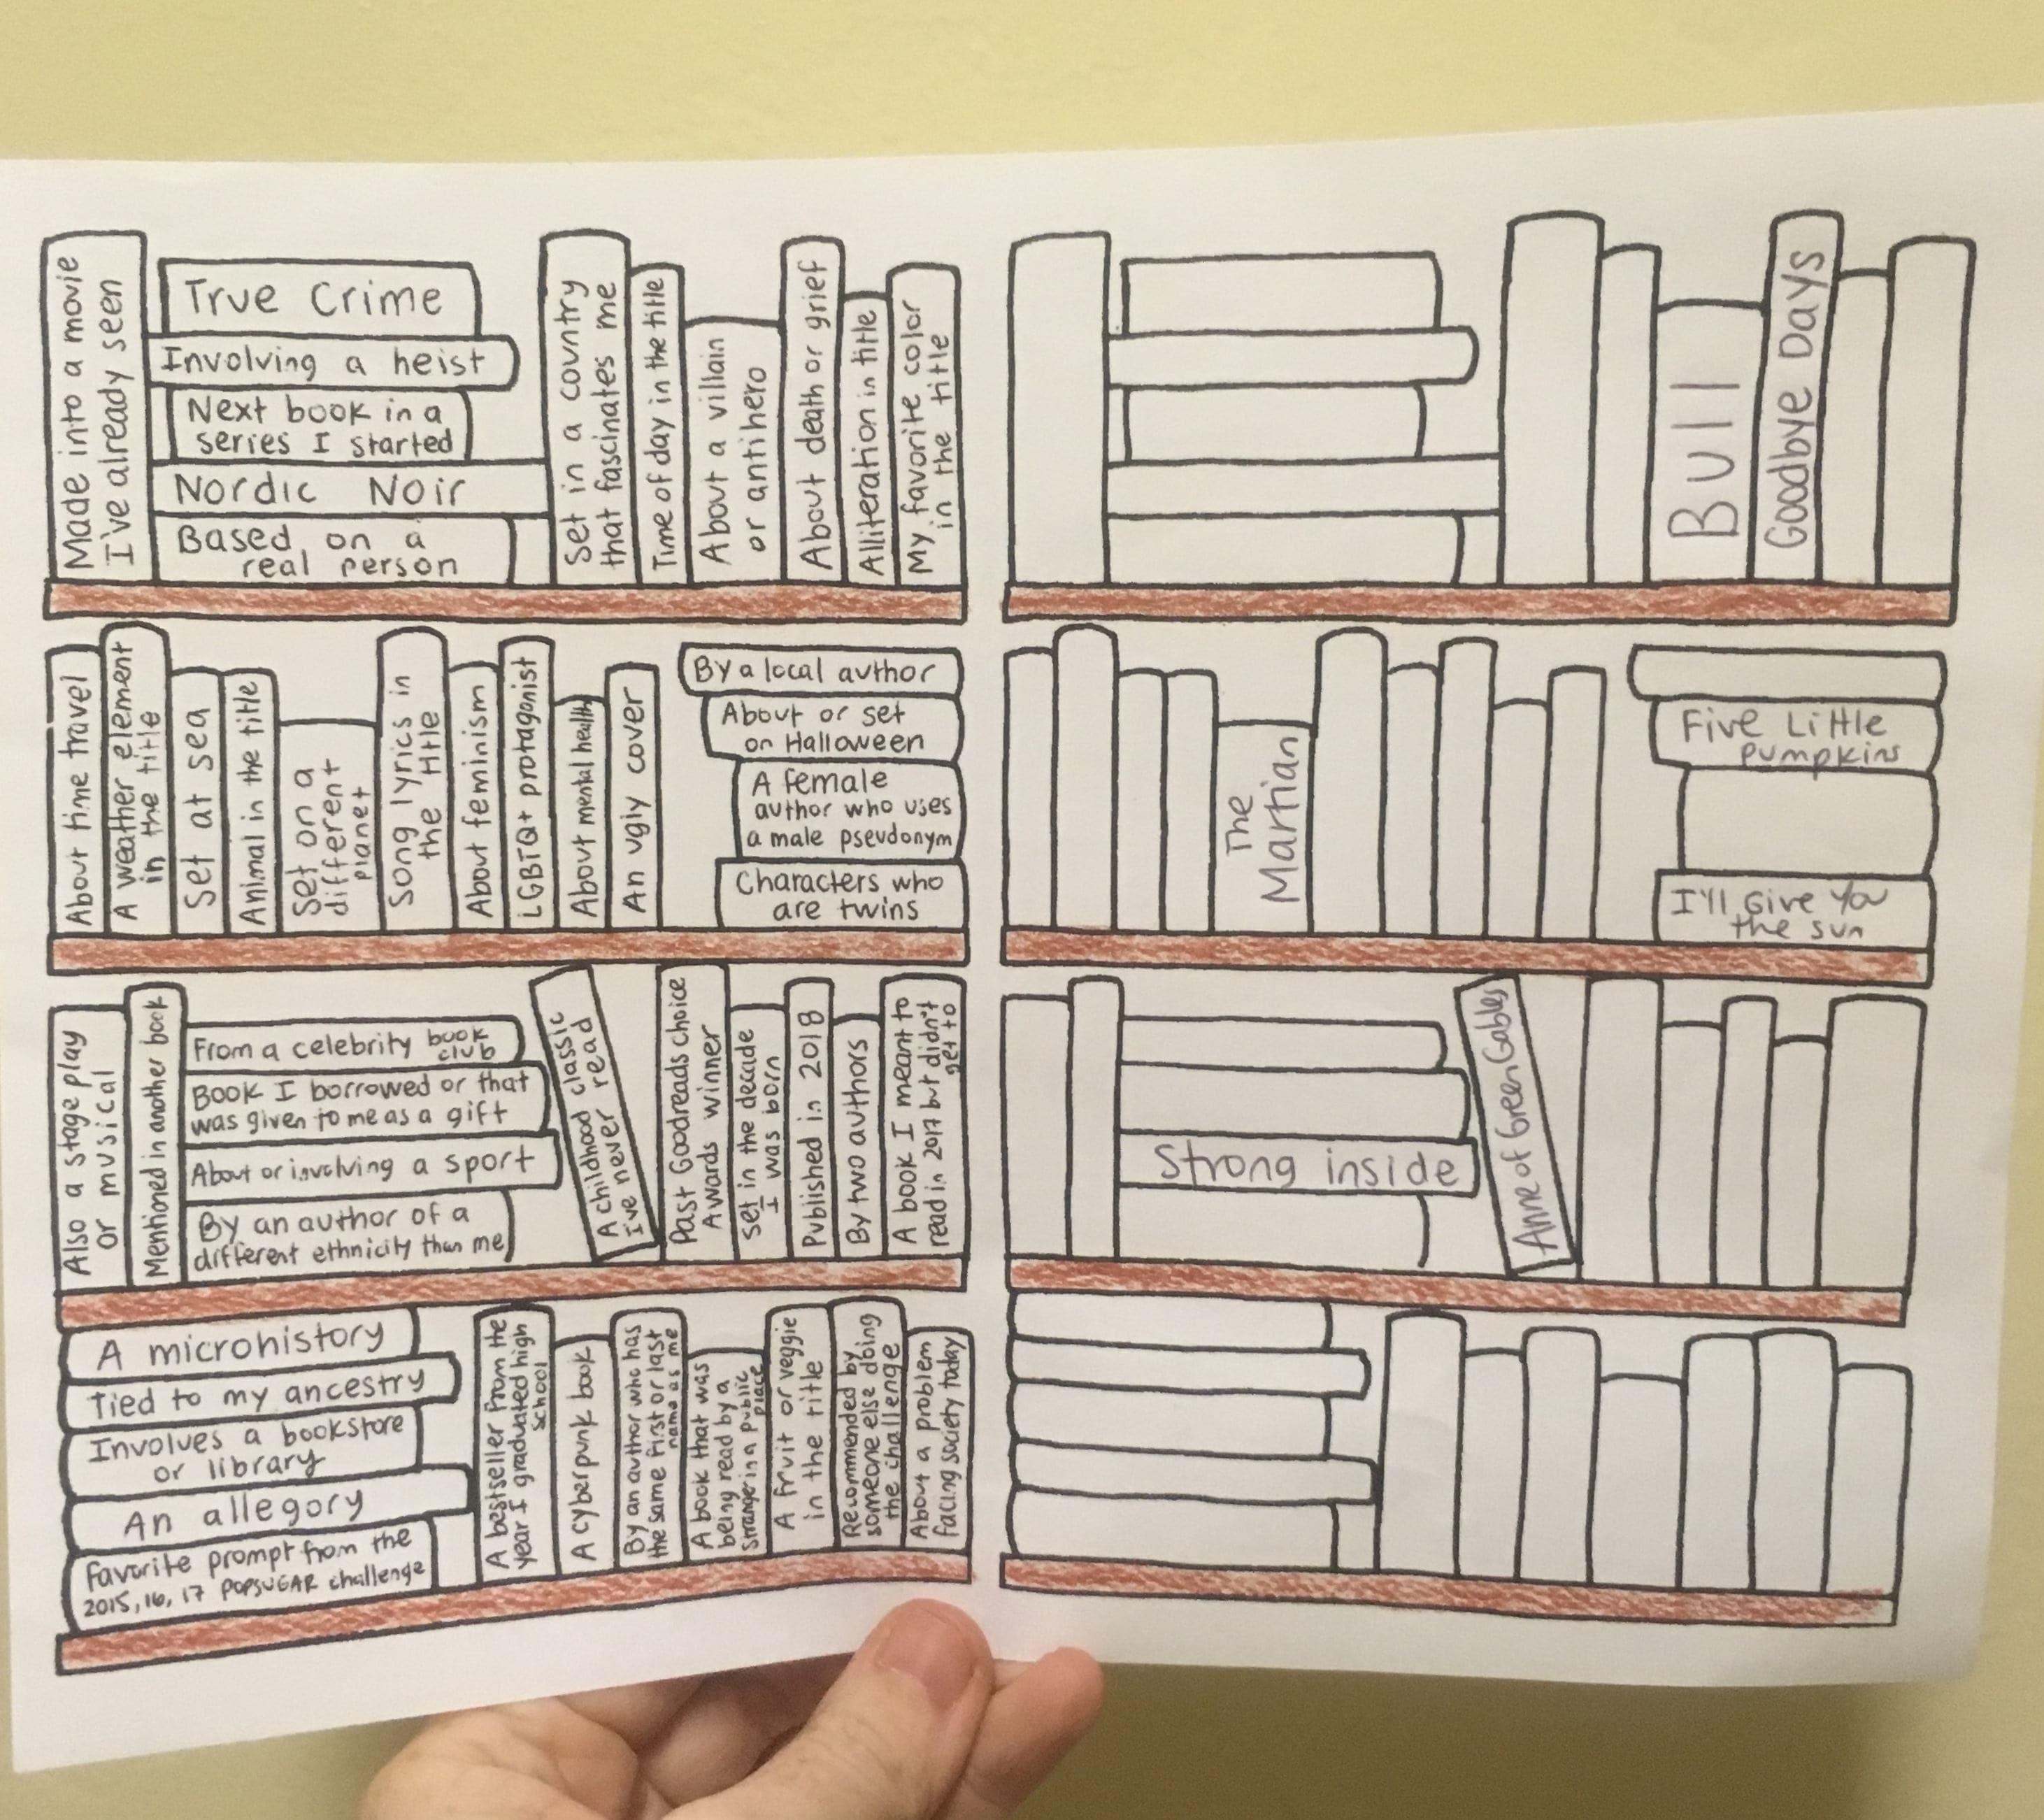 Made into a movie
I've already seen
True Crime
Involving a heist
Next book in a
series I started
Nordic Noir
Based on a
real person
Set in a country
that fascinates me
Time of day in the title
About a villain
or antihero
About death or grief
Alliteration in title
My favorite color
in the title
Bull
Goodbye Days
About time travel
A weather element
in the title
Set at sea
Animal in the title
Set on a
different
planet
Song lyrics in
the title
About feminism
LGBTQ+ protagonist
About mental health
An ugly cover
By a local author
About or set
on Halloween
A female
author who uses
a male pseudonym
Characters who
are twins
The
Martian
Five Little
pumpkins
I'll Give You
the sun
Also a stage play
or musical
Mentioned in another book
From a celebrity book
club
Book I borrowed or that
was given to me as a gift
About or involving a sport
By an author of a
different ethnicity than me
A childhood classic
I've never read
Past Goodreads choice
Awards winner
set in the decade
I was born
Published in 2018
By two authors
A book I meant to
read in 2017 but didn't
get to
Strong inside
Anne of Green Gables
A microhistory
tied to my ancestry
Involves a bookstore
or library
An allegory
favorite prompt from the
2015, 16, 17 POPSUGAR challenge
A bestseller from the
year I graduated high
school
A cyberpunk book
By an author who has
the same first or last
name as me
A book that was
being read by a
stranger in a public
place
A fruit or veggie
in the title
Recommended by
someone else doing
the challenge
About a problem
facing society today